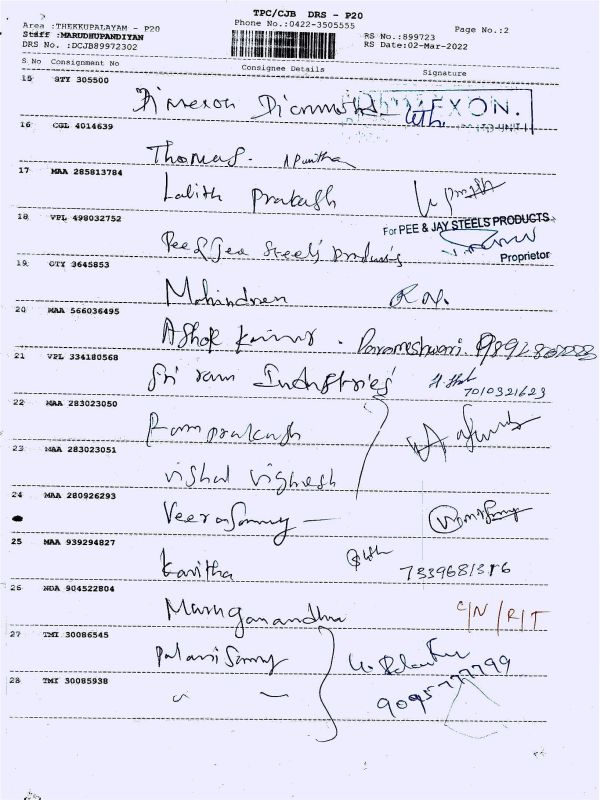 TPC/CJB DRS - P20
Area :THEKKUPALAYAM - P20
Phone No.:0422-3505555
Page No.:2
Staff :MARUDHUPANDIYAN
RS No.:899723
DRS No. :DCJB89972302
RS Date:02-Mar-2022
S No Consignment No Consignee Details Signature
15 GTY 305500
Dimexon Diamonds EXON.
16 CGL 4014639
Thomas.
17 MAA 285813784
Lalith Prakash
18 VPL 498032752
For PEE & JAY STEELS PRODUCTS
Pee & Jea Steels Products
Proprietor
19 GTY 3645853
Mohindren
20 MAA 566036495
Ashok Kumar. Parameshwari.
21 VPL 334180568
Sri ram Industries
7010321623
22 MAA 283023050
Ramprakash
23 MAA 283023051
Vishal Vignesh
24 MAA 280926293
Veerasamy
25 MAA 939294827
Kavitha 7339681316
26 NDA 904522804
Muruganandha C/N/R/T
27 TMI 30086545
Palanisamy
28 TMI 30085938
9095777799